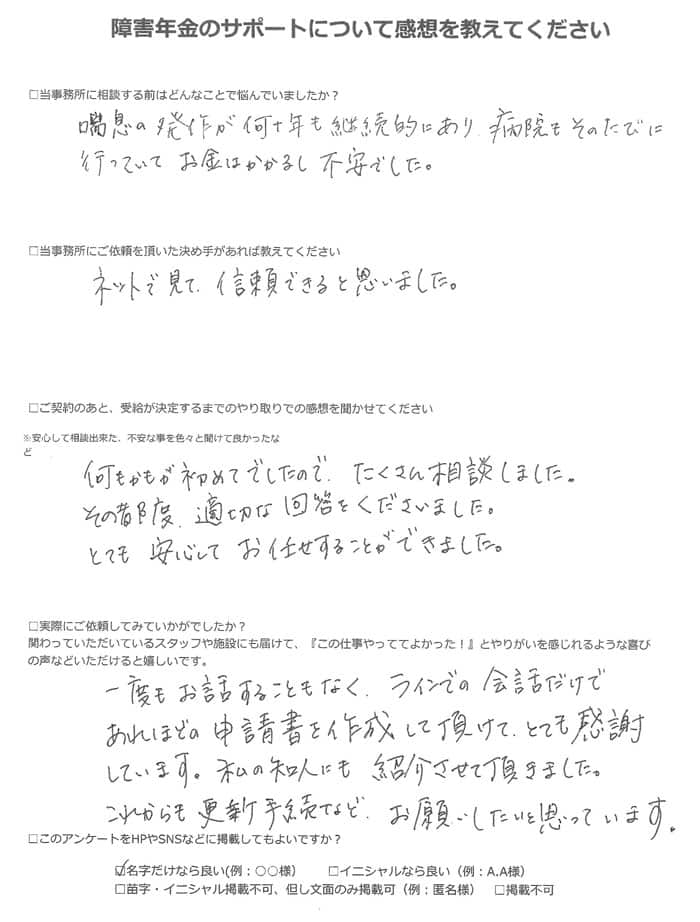 障害年金のサポートについて感想を教えてください
□当事務所に相談する前はどんなことで悩んでいましたか？
喘息の発作が何十年も継続的にあり、病院もそのたびに
行っていて お金はかかるし 不安でした。
□当事務所にご依頼を頂いた決め手があれば教えてください
ネットで見て、信頼できると思いました。
□ご契約のあと、受給が決定するまでのやり取りでの感想を聞かせてください
※安心して相談出来た、不安な事を色々と聞けて良かったな
ど
何もかもが初めてでしたので、たくさん相談しました。
その都度、適切な回答をくださいました。
とても 安心して お任せすることができました。
□実際にご依頼してみていかがでしたか？
関わっていただいているスタッフや施設にも届けて、『この仕事やっててよかった！』とやりがいを感じれるような喜び
の声などいただけると嬉しいです。
一度もお話することもなく、ラインでの会話だけで
あれほどの申請書を作成して頂けて、とても感謝
しています。私の知人にも 紹介させて頂きました。
これからも更新手続など、お願いしたいと思っています。
□このアンケートをHPやSNSなどに掲載してもよいですか？
☑名字だけなら良い(例：○○様） □イニシャルなら良い（例：A.A様）
□苗字・イニシャル掲載不可、但し文面のみ掲載可（例：匿名様） □掲載不可